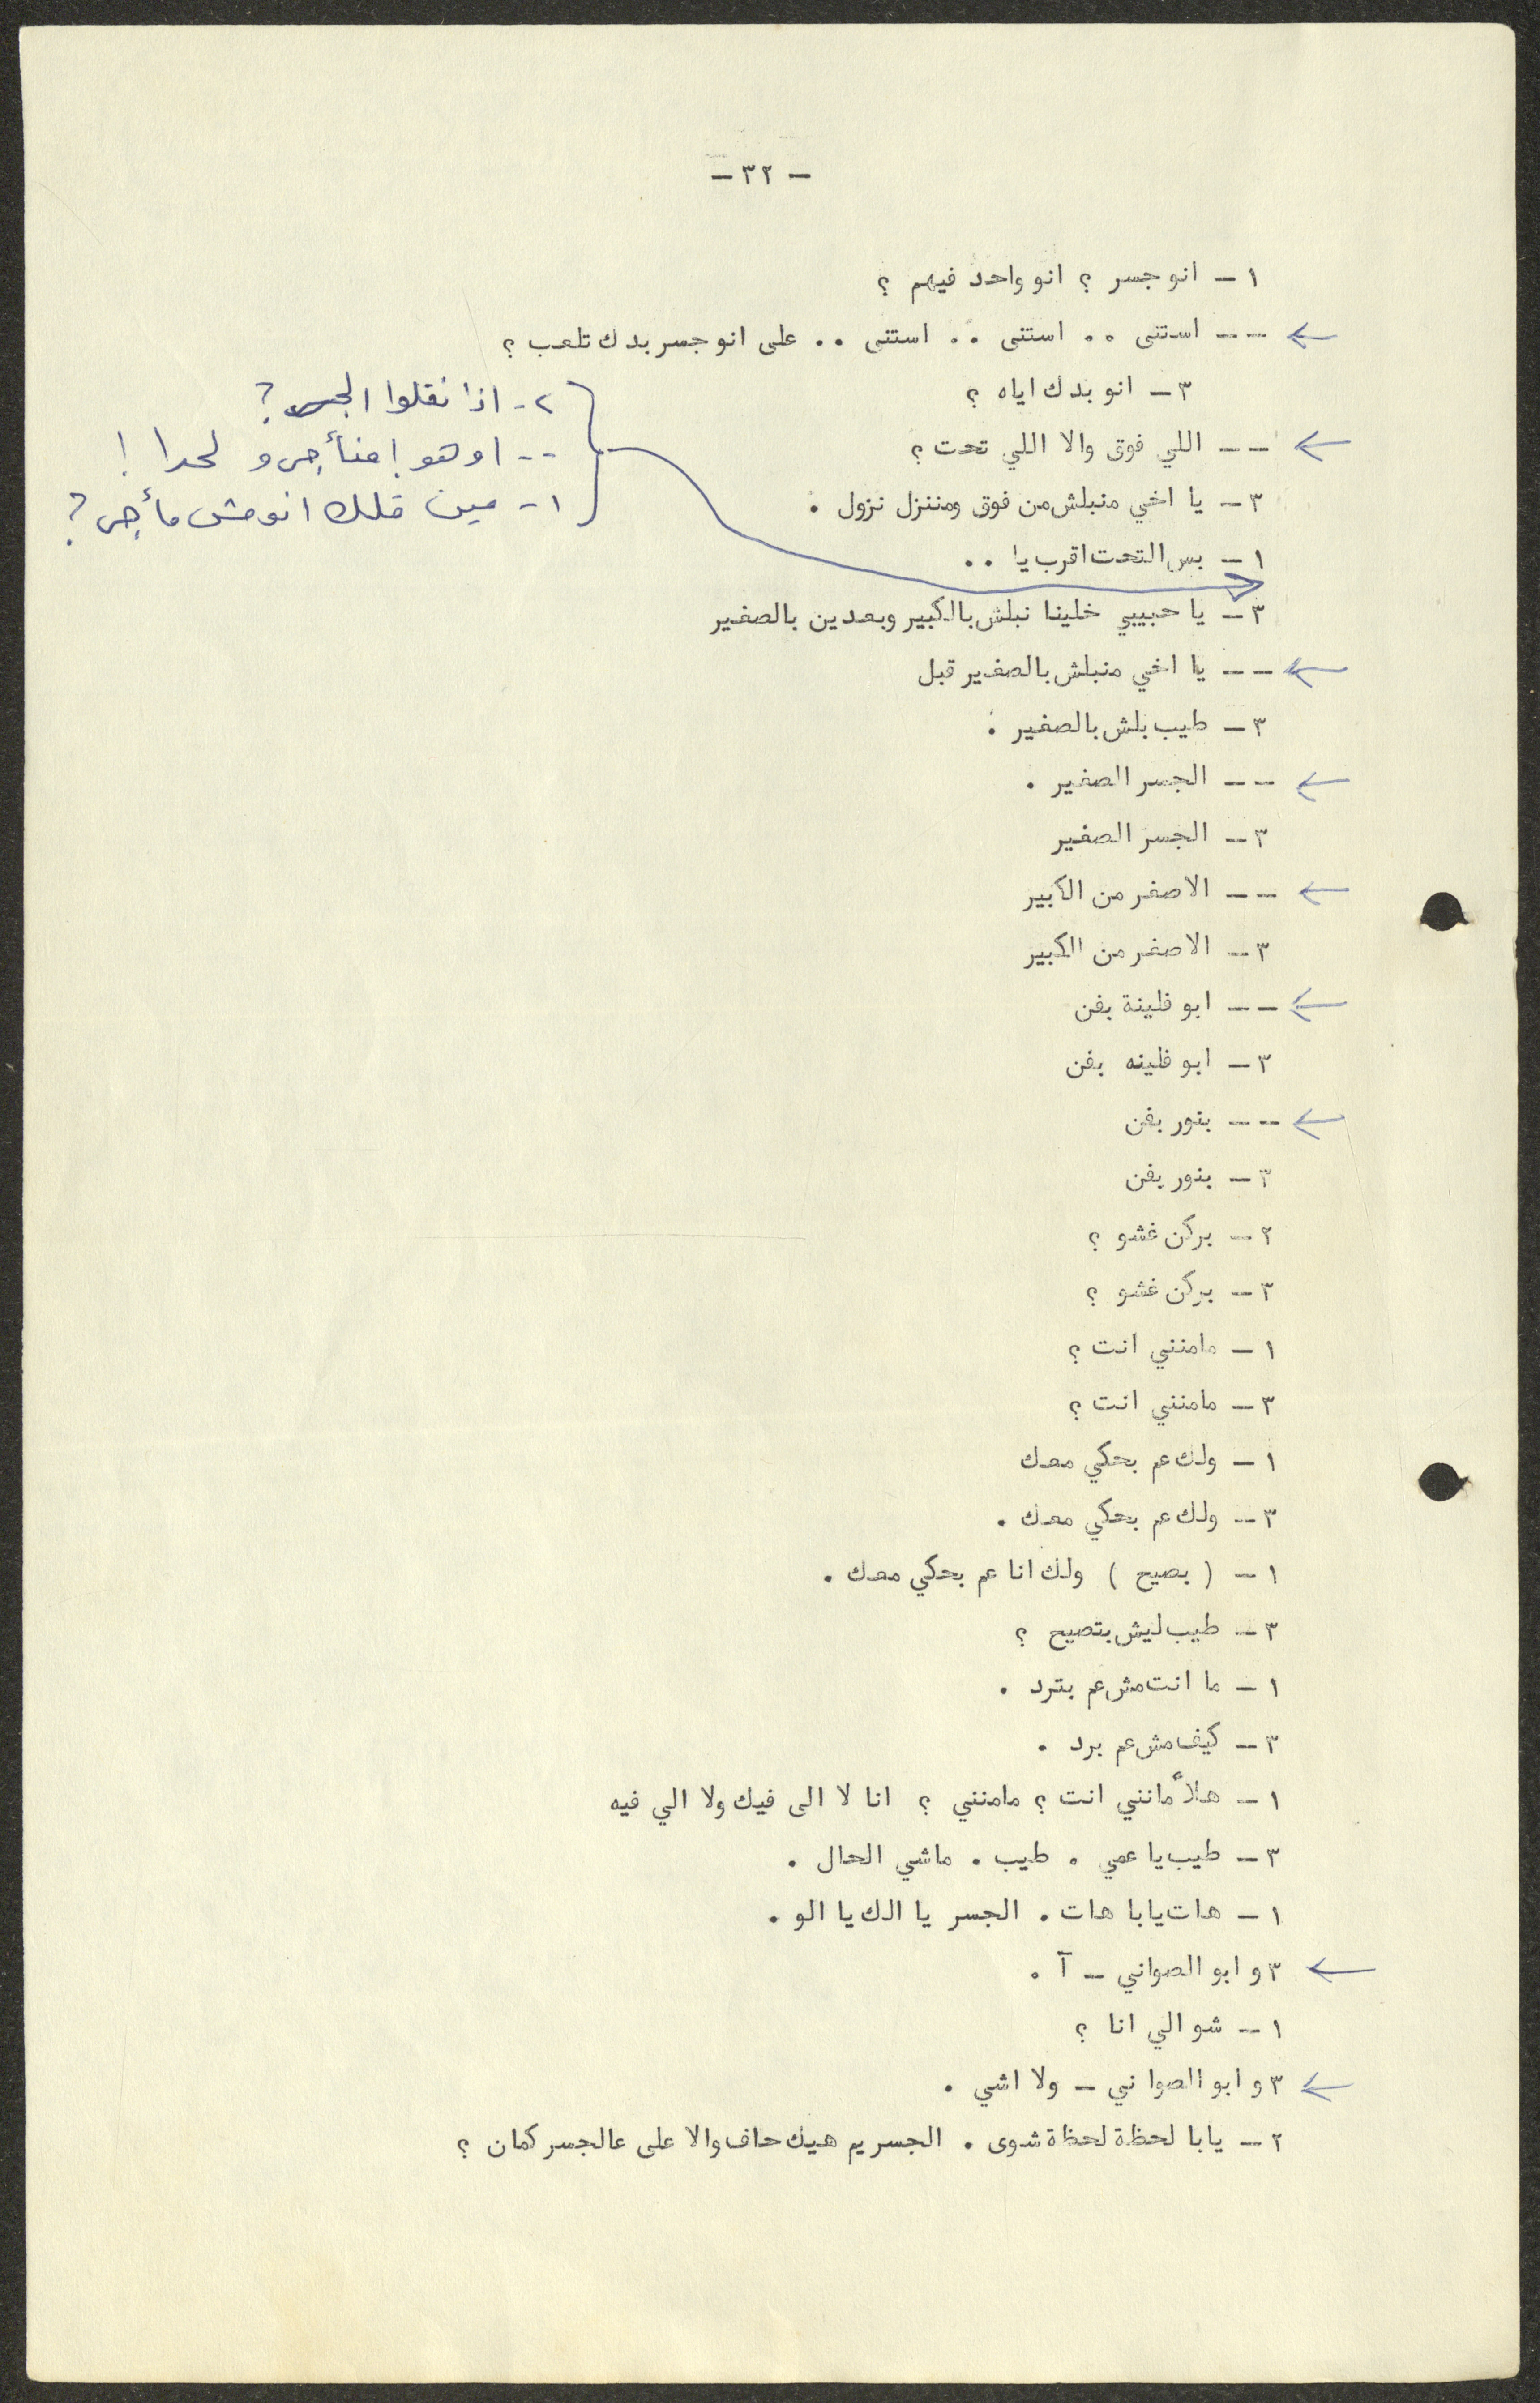 - ٣٢ -
١ - انو جسر ؟ انو واحد فيهم ؟
-- استنى .. استنى .. استنى .. على انو جسر بدك تلعب ؟
٣ - انو بدك اياه ؟
-- اللي فوق والا اللي تحت ؟
٣ - يا اخي منبلش من فوق ومننزل نزول .
١ - بس التحت اقرب يا ..
٢ - اذا نقلوا الجسر ?
-- اوهو امنأجرو لحدا !
١ - مين قلك انو مش مأجر ?
٣ - يا حبيبي خلينا نبلش بالكبير وبعدين بالصغير
-- يا اخي منبلش بالصغير قبل
٣ - طيب بلش بالصغير .
-- الجسر الصغير .
٣ - الجسر الصغير
-- الاصغر من الكبير
٣ - الاصغر من الكبير
-- ابو فلينة بفن
٣ - ابو فلينه بفن
-- بنور بفن
٣ - بنور بفن
٢ - بركن غشو ؟
٣ - بركن غشو ؟
١ - مامنني انت ؟
٣ - مامنني انت ؟
١ - ولك عم بحكي معك
٣ - ولك عم بحكي معك .
١ - ( بصيح ) ولك انا عم بحكي معك .
٣ - طيب ليش بتصيح ؟
١ - ما انت مش عم بترد .
٣ - كيف مش عم برد .
١ - هلأ مانني انت ؟ مامنني ؟ انا لا الى فيك ولا الي فيه
٣ - طيب يا عمي . طيب . ماشي الحال .
١ - هات يابا هات . الجسر يا الك يا الو .
٣ و ابو الصواني - آ .
١ - شو الي انا ؟
٣ و ابو الصواني - ولا اشي .
٢ - يابا لحظة لحظة شوى . الجسر يم هيك حاف والا على عالجسر كمان ؟